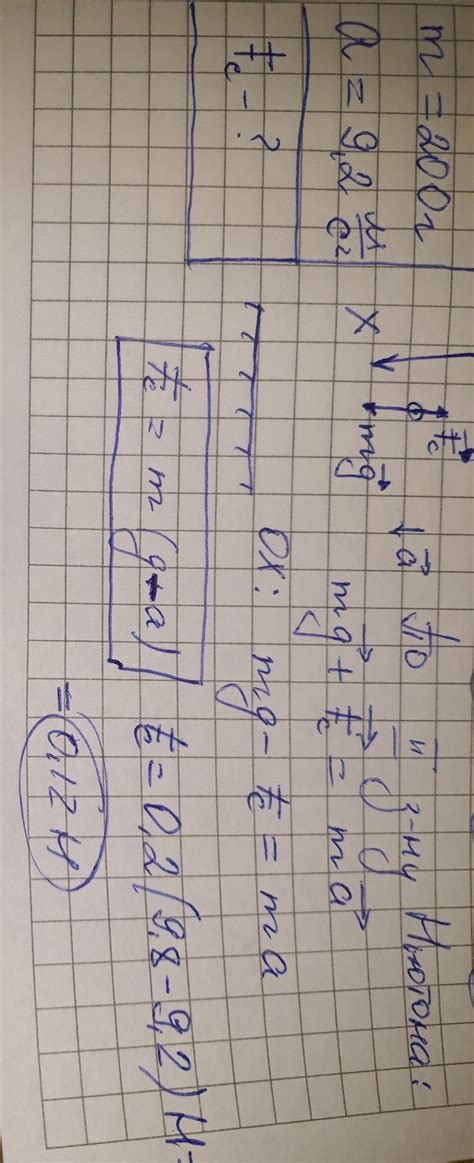 m = 200г
a = 9,2 м/с²
Fc - ?
X
Fc
mg
a
По II з-ну Ньютона:
mg + Fc = ma
OX: mg - Fc = ma
Fc = m(g-a)
Fc = 0,2(9,8-9,2)Н=
= 0,12 Н